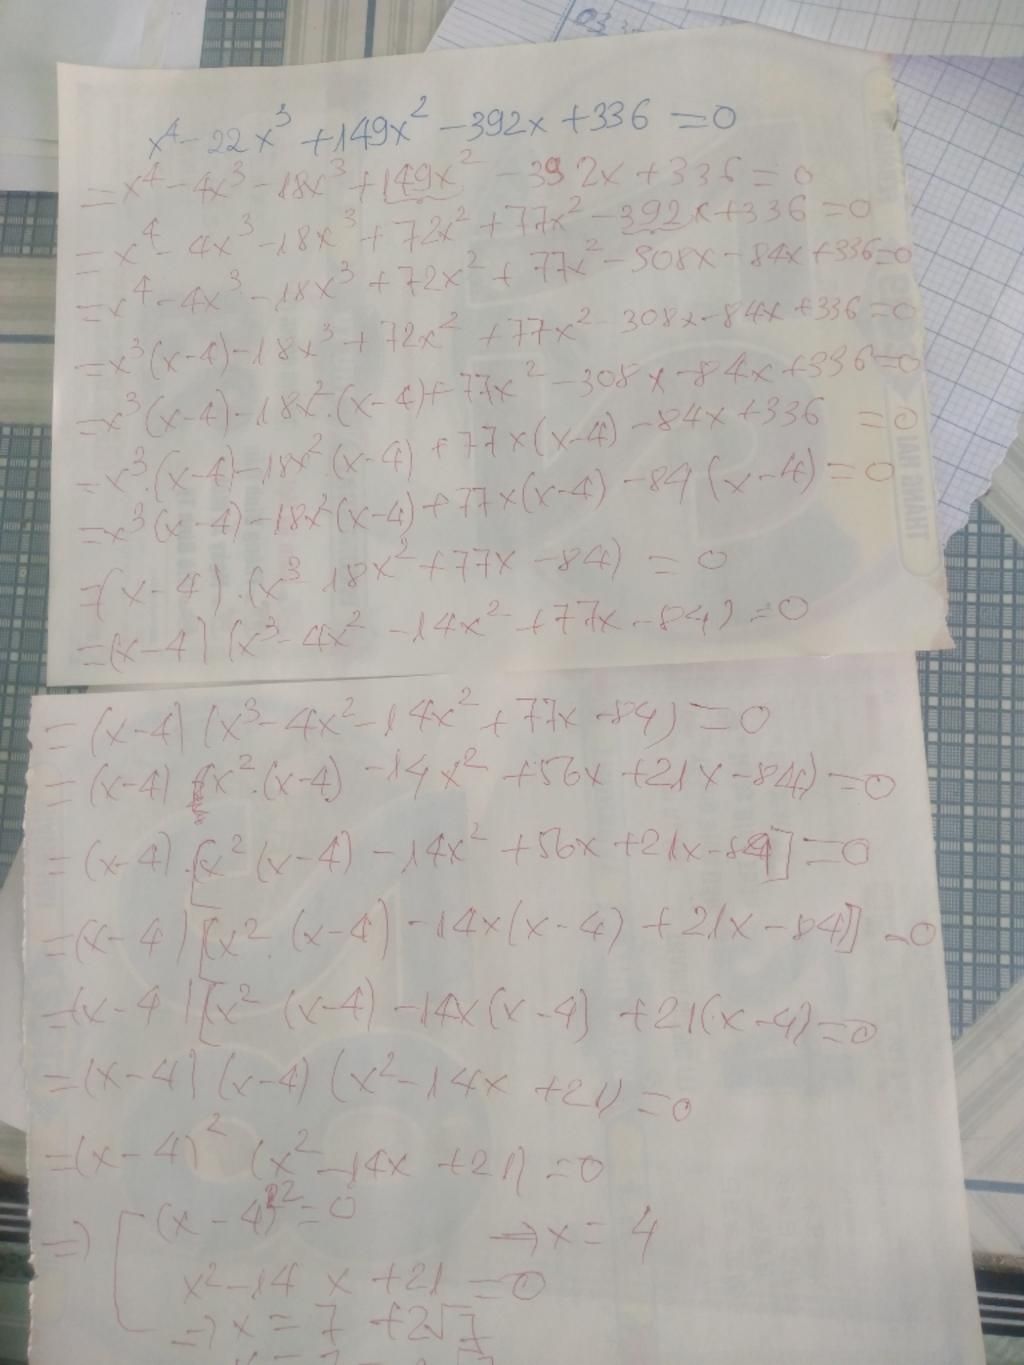 03
x⁴ - 22x³ + 149x² - 392x + 336 = 0
= x⁴ - 4x³ - 18x³ + 149x² - 392x + 336 = 0
= x⁴ - 4x³ - 18x³ + 72x² + 77x² - 392x + 336 = 0
= x⁴ - 4x³ - 18x³ + 72x² + 77x² - 308x - 84x + 336 = 0
= x³(x-4) - 18x³ + 72x² + 77x² - 308x - 84x + 336 = 0
= x³(x-4) - 18x².(x-4) + 77x² - 308x - 84x + 336 = 0
= x³.(x-4) - 18x².(x-4) + 77x(x-4) - 84x + 336 = 0
= x³(x-4) - 18x²(x-4) + 77x(x-4) - 84(x-4) = 0
= (x-4).(x³ 18x² + 77x - 84) = 0
= (x-4) (x³ - 4x² - 14x² + 77x - 84) = 0
= (x-4) (x³ - 4x² - 14x² + 77x - 84) = 0
= (x-4) (x².(x-4) - 14x² + 56x + 21x - 84) = 0
= (x-4).[x²(x-4) - 14x² + 56x + 21x - 84] = 0
= (x-4) [x².(x-4) - 14x(x-4) + 21x - 84] = 0
= (x-4) [x²(x-4) - 14x(x-4) + 21(x-4) = 0
= (x-4) (x-4) (x² - 14x + 21) = 0
= (x-4)² (x² - 14x + 21) = 0
=> [ (x-4)² = 0 => x = 4
x² - 14x + 21 = 0
=> x = 7 + 2√7
THANG HAI